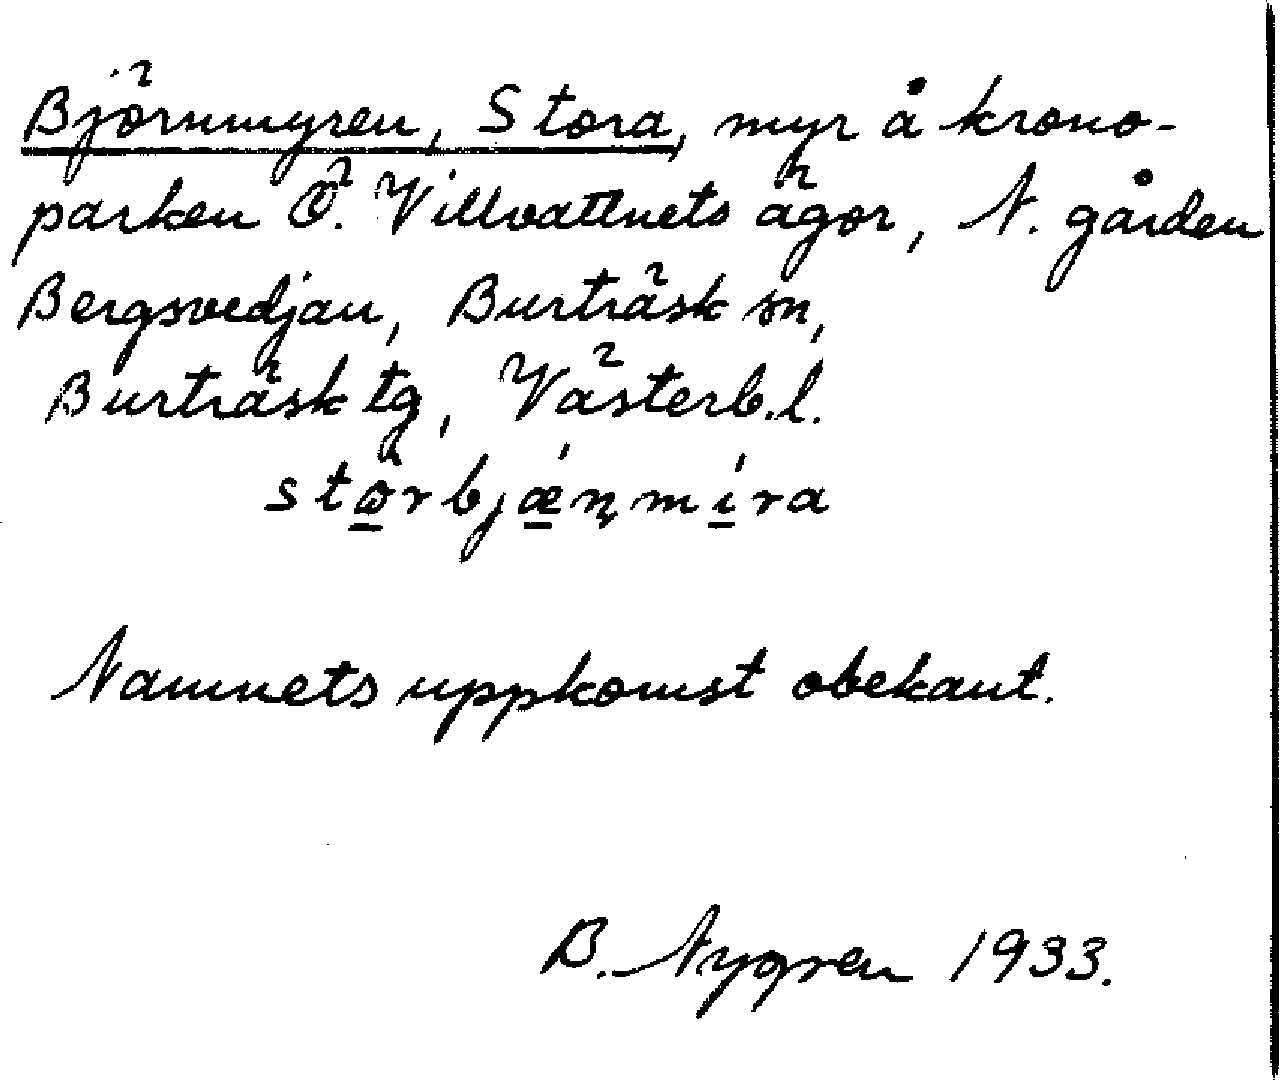 Björnmyren, Stora, myr å krono-
parken Ö. Villvattnets ägor, N. gården
Bergsvedjan, Burträsk sn,
Burträsk tg, Västerb.l.
stὼrbjǽṇmíra
Namnets uppkomst obekant.
B. Nygren 1933.